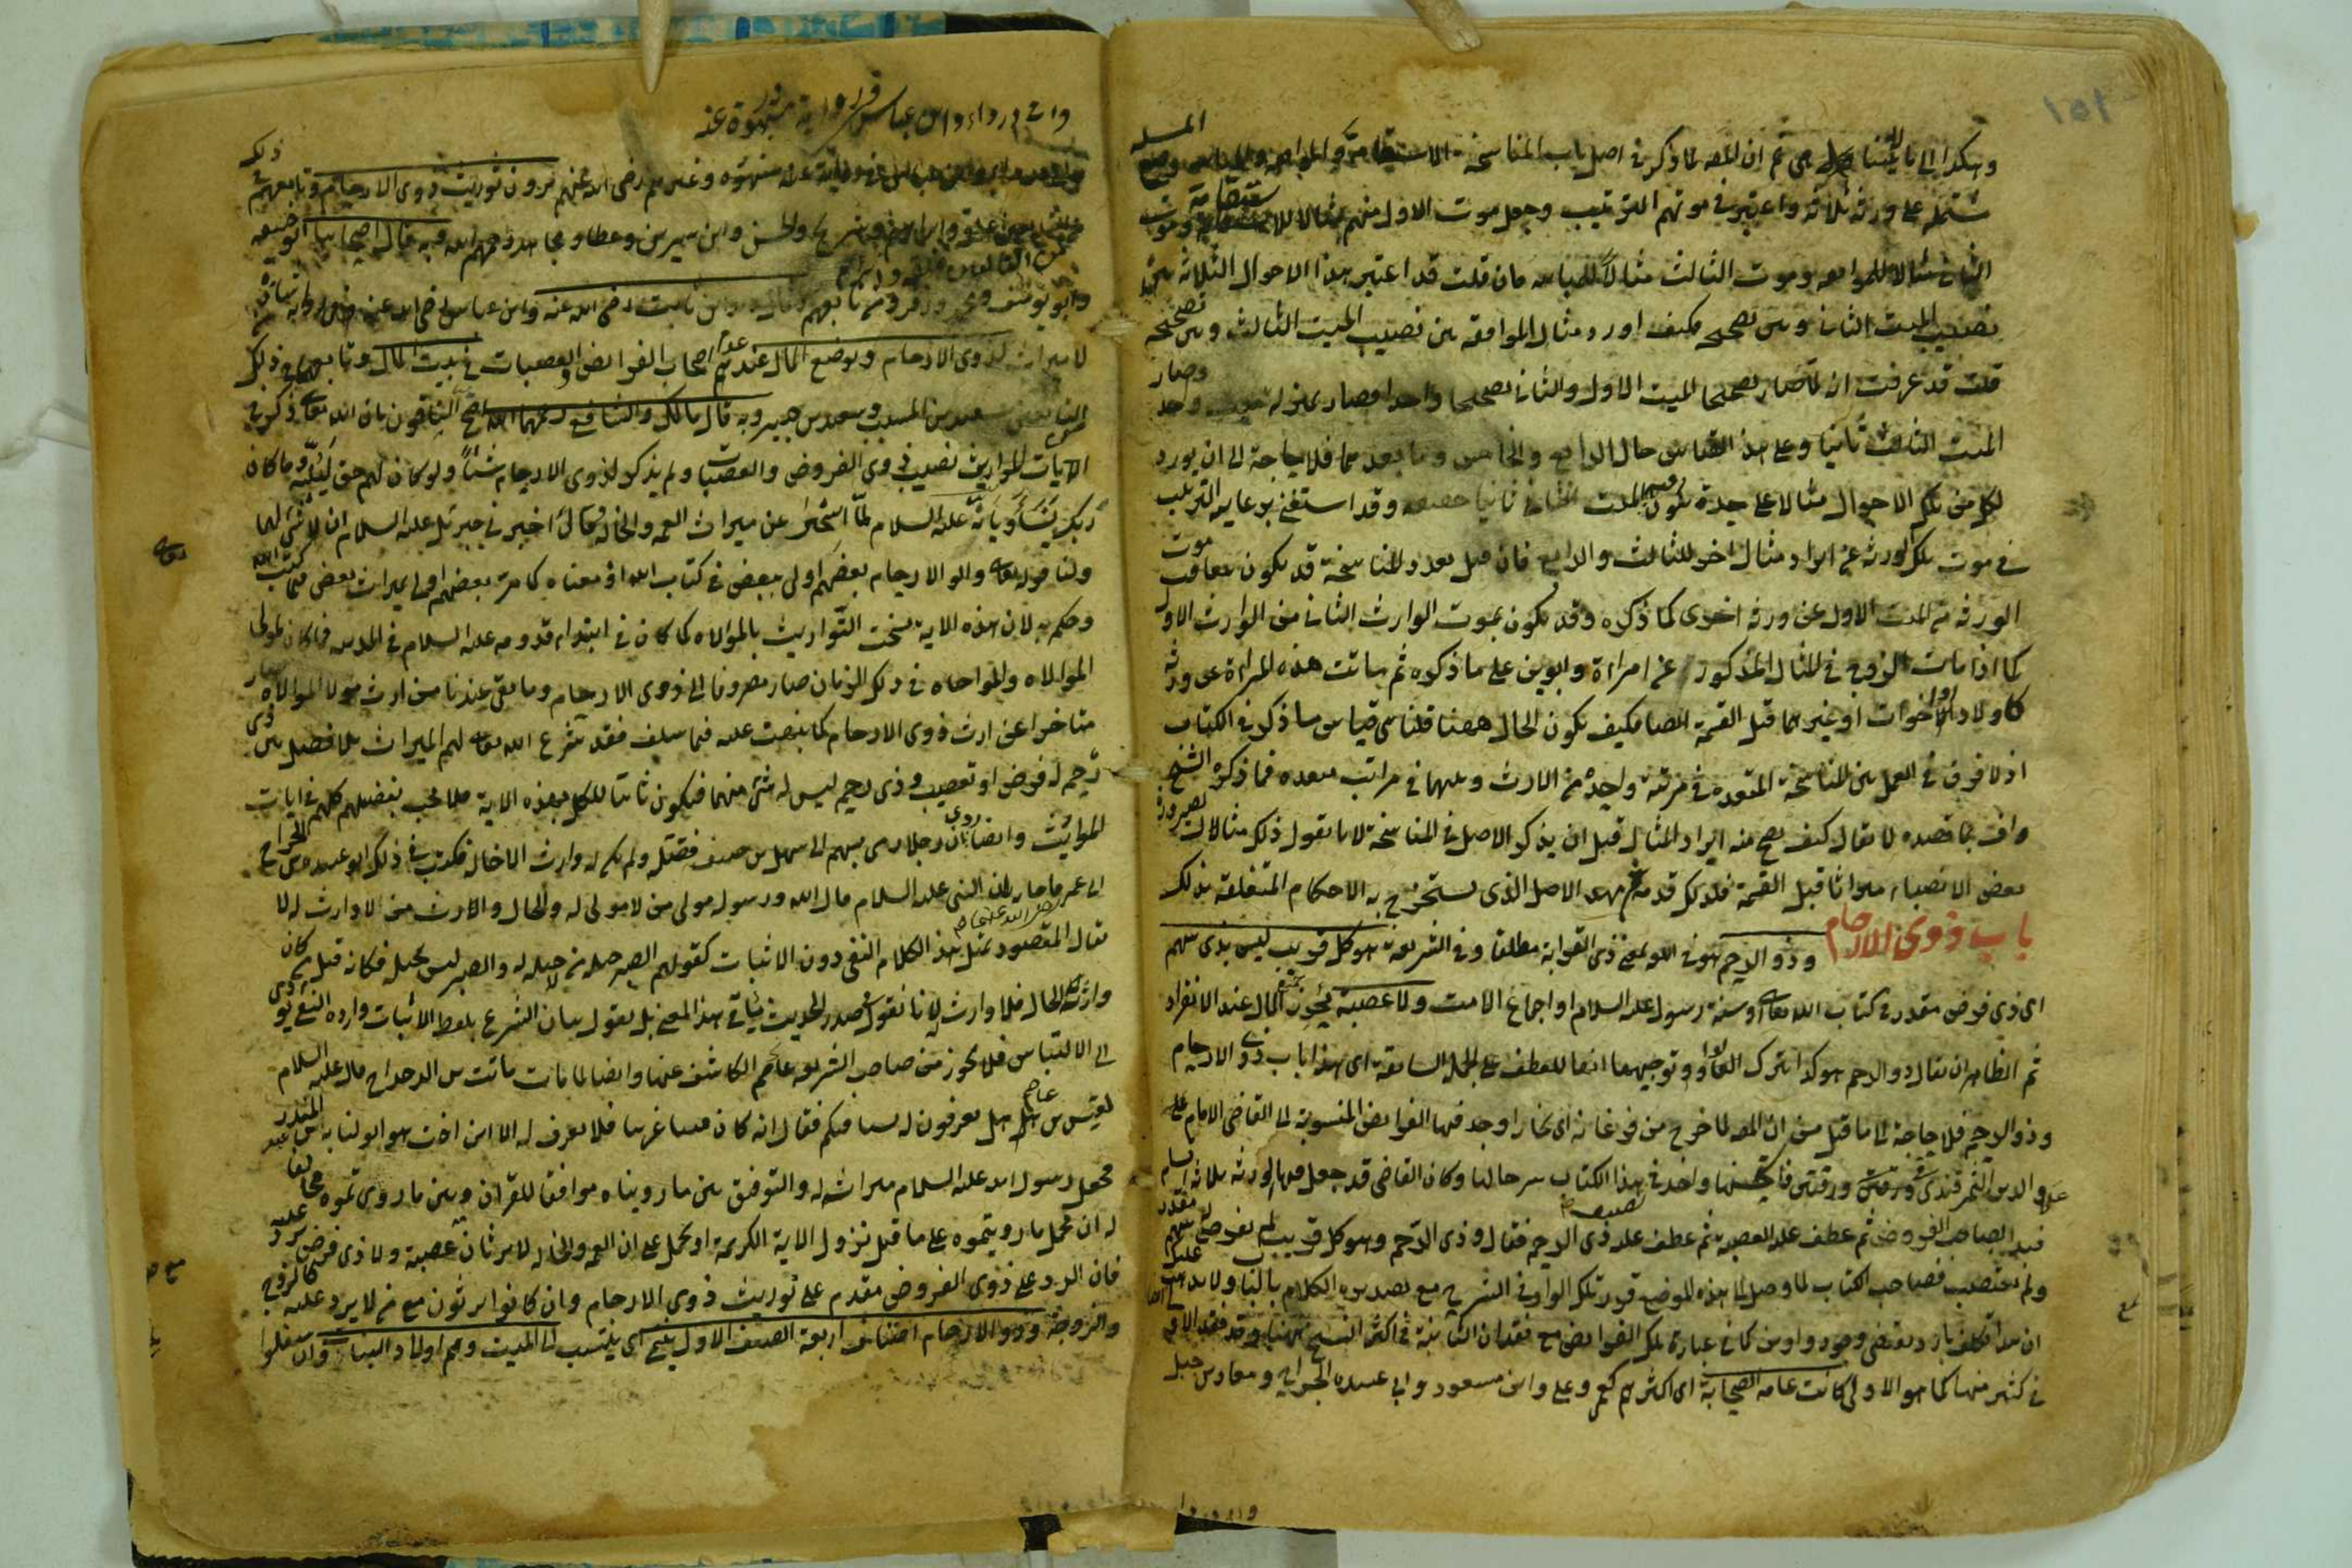 وهكذا الى ما لا يتناهى ثم ان المصنف لما ذكر في اصل باب المناسخة الاستقامة والموافقة والمباينة
مشتملة على ورثة ثلاثة واعتبر في موتهم الترتيب وجعل موت الاول منهم مثالا للاستقامة وموت
الثاني مثالا للموافقة وموت الثالث مثالا للمباينة فان قلت قد اعتبر هذا الاحوال الثلاثة بين
نصيب الميت الثاني وبين تصحيحه فكيف اورد مثال الموافقة بين نصيب الميت الثالث وبين تصحيحه
قلت قد عرفت ان لما صار تصحيحا الميت الاول والثاني تصحيحا واحدا فصار بمنزلة ميت واحد وصار
الميت الثالث ثانيا وعلى هذا القياس حال الرابع والخامس وما بعدهما فلا حاجة الى ان يورد
لكل من تلك الاحوال مثالا على حدة يكون فيه الميت الثاني ثانيا حقيقة وقد استغنى برعاية الترتيب
في موت تلك الورثة عن ايراد مثال اخر للثالث والرابع فان قيل تعدد المناسخة قد يكون بتعاقب موت
الورثة من الميت الاول عن ورثة اخرى كما ذكره وقد يكون بموت الوارث الثاني من الوارث الاول
كما اذا مات الزوج في المثال المذكور عن امراة وابوين على ما ذكره ثم ماتت هذه المراة عن ورثة
كاولاد او اخوات او غيرهما قبل القسمة ايضا فكيف يكون الحال ههنا قلنا هي قياس ما ذكره في الكتاب
اذ لا فرق في العمل بين المناسخة المتعددة في مرتبة واحدة من الارث وبينهما في مراتب متعددة فما ذكره الشيخ
واف بما قصده لا يقال كيف يصح منه ايراد المثال قبل ان يذكر الاصل في المناسخة لانا نقول ذلك مثال لصيرورة
بعض الانصباء ميراثا قبل القسمة فلذلك قدمه ثم مهد الاصل الذي يستخرج به الاحكام المتعلقة بذلك
باب ذوي الارحام وذو الرحم هو في اللغة بمعنى ذي القرابة مطلقا وفي الشريعة هو كل قريب ليس بذي سهم
اى ذي فرض مقدر في كتاب الله تعالى او سنة رسوله عليه السلام او اجماع الامة ولا عصبة يحرز جميع المال عند الانفراد
ثم الظاهر ان يقال ذو الرحم هو كذا بترك الواو وتوجيهها انها للعطف على الجملة السابقة اى هذا باب ذوي الارحام
وذو الرحم فلا حاجة الى ما قيل من ان المصنف لما خرج من فرغانة الى بخارا وجد فيها الفرائض المنسوبة الى القاضي الامام علاء
الدين السمرقندي في ورقتين فاستحسنها واخذ في هذا الكتاب شرحا لها وكان القاضي قد جعل فيها الورثة ثلاثة اقسام
فبدا بصاحب الفروض ثم عطف عليه العصبة ثم عطف عليه ذي الرحم فقال وذي الرحم وهو كل قريب لم يفرض له سهم مقدر
ولم يعتصب فصاحب الكتاب لما وصل الى هذه الموضع قرر تلك الواو في الشرح مع تصديره الكلام بالباب ولا يذهب عليك
ان هذا تكلف بارد يقتضي وجود واوين كما في عبارة تلك الفرائض مع فقدان الثانية في اكثر النسخ
في كثير منها كما هو الاولى كانت عامة الصحابة اى اكثرهم كعمر وعلي وابن مسعود وابي عبيدة بن الجراح ومعاذ بن جبل
وابي الدرداء وابن عباس في رواية مشهورة عنه
وغيرهم رضى الله عنهم يرون توريث ذوى الارحام وتابعهم في ذلك
من التابعين علقمة وابراهيم وشريح والحسن وابن سيرين وعطاء ومجاهد رحمهم الله وبه قال اصحابنا ابو حنيفة
وابو يوسف ومحمد وزفر ومن تابعهم وقال زيد بن ثابت رضى الله عنه وابن عباس رضى الله عنه في رواية شاذة
لا ميراث لذوى الارحام ويوضع المال عند عدم اصحاب الفرائض والعصبات في بيت المال وتابعهما في ذلك
من التابعين سعيد بن المسيب وسعيد بن جبير وبه قال مالك والشافعي رحمهما الله احتج النافون بان الله تعالى ذكر في
الايات المواريث نصيب ذوى الفروض والعصبات ولم يذكر لذوى الارحام شيئا ولو كان لهم حق لبينه وما كان
ربك نسيا وبانه عليه السلام لما استخبر عن ميراث العمة والخالة قال اخبرني جبرئيل عليه السلام ان لا شئ لهما
ولنا قوله تعالى واولوا الارحام بعضهم اولى ببعض في كتاب الله اذ معناه كما مر بعضهم اولى بميراث بعض فيما كتب الله
وحكم به لان هذه الاية نسخت التوارث بالموالاة كما كان في ابتداء قدومه عليه السلام في المدينة فما كان لمولى
الموالاة والمواخاة في ذلك الزمان صار مصروفا الى ذوى الارحام وما بقى عندنا من ارث مولا الموالاة صار
متاخرا عن ارث ذوى الارحام كما نبهت عليه فيما سلف فقد شرع الله تعالى لهم الميراث بلا فصل بين ذى
رحم له فرض او تعصيب وذى رحم ليس له شئ منهما فيكون ثابتا للكل بهذه الاية فلا يجب تفصيلهم كلهم في ايات
المواريث وايضا روى ان رجلا رمى بسهم الى سهل بن حنيف فقتله ولم يكن له وارث الا خاله فكتب في ذلك ابو عبيدة بن الجراح
الى عمر فاجابه بان النبى عليه السلام قال الله ورسوله مولى من لا مولى له والخال وارث من لا وارث له لا
يقال المقصود بمثل هذا الكلام النفى دون الاثبات كقولهم الصبر حيلة من لا حيلة له والصبر ليس بحيلة فكانه قيل من كان
وارثه الخال فلا وارث له لانا نقول صدر الحديث ينافى هذا المعنى بل نقول بيان الشرع بلفظ الاثبات وارادة النفى يؤدى
الى الالتباس فلا يجوز من صاحب الشريعة الكاشف عنها وايضا لما مات ثابت بن الدحداح قال عليه السلام
لقيس بن عاصم هل تعرفون له نسبا فيكم فقال انه كان فينا غريبا فلا نعرف له الا ابن اخت هو ابو لبابة بن عبد المنذر
فجعل رسول الله عليه السلام ميراثه له والتوفيق بين ما رويناه موافقا للقران وبين ما روى تموه مخالفا
له ان يحمل ما رويتموه على ما قبل نزول الاية الكريمة او يحمل على ان العمة والخالة لا يرثان مع عصبة ولا ذى فرض يرد عليه
فان الرد على ذوى الفروض مقدم على توريث ذوى الارحام وان كانوا يرثون مع من لا يرد عليه كالزوج
والزوجة وذوو الارحام اصناف اربعة الصنف الاول ينتمى اى ينتسب الى الميت وهم اولاد البنات وان سفلوا